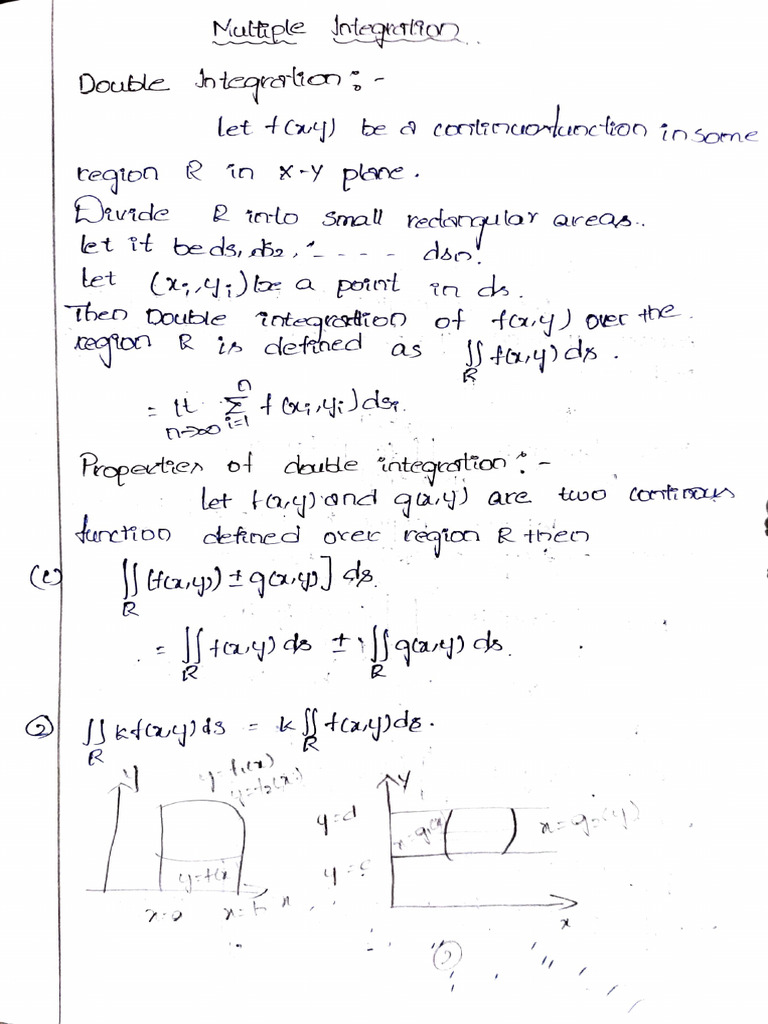 Multiple Integration
Double Integration :-
let f(x,y) be a continuous function in some
region R in x-y plane.
Divide R into small rectangular areas.
let it be ds₁, ds₂, - - - - dsn.
Let (xᵢ, yᵢ) be a point in ds.
Then Double integration of f(x,y) over the
region R is defined as ∬_R f(x,y) ds.
= lt_{n→∞} Σ_{i=1}^{n} f(xᵢ, yᵢ) dsᵢ
Properties of double integration :-
let f(x,y) and g(x,y) are two continous
function defined over region R then
∬_R [f(x,y) ± g(x,y)] ds.
= ∬_R f(x,y) ds ± ∬_R g(x,y) ds.
② ∬_R k f(x,y) ds = k ∬_R f(x,y) ds.
y
y=f₁(x)
y=f₂(x)
x
y
y=d
y=c
x